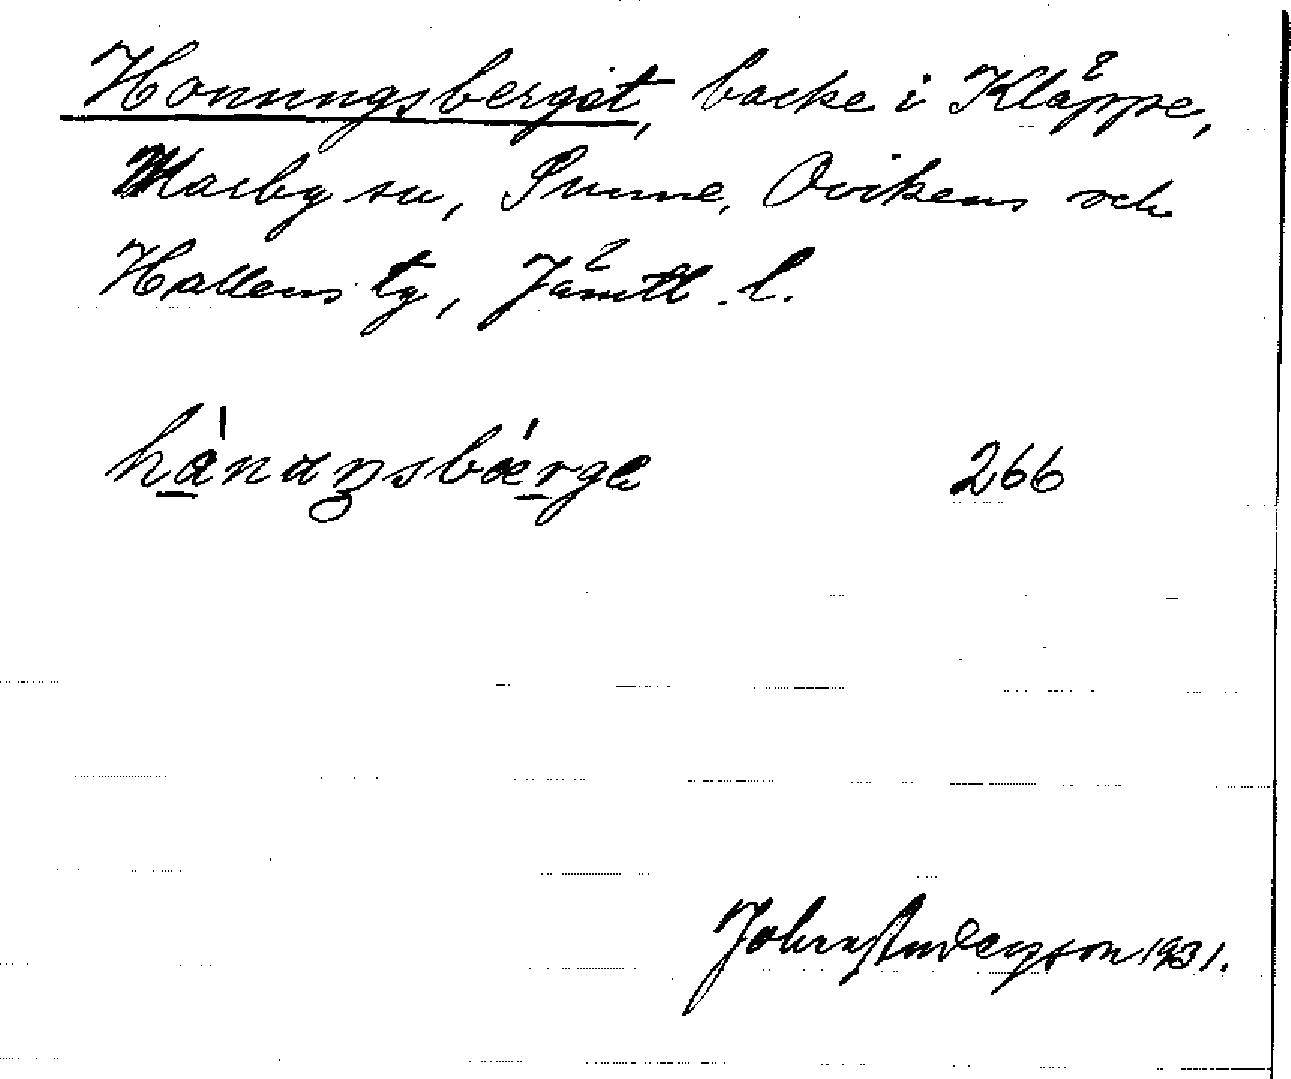 Honungsberget, backe i Kläppe,
Marby sn, Sunne, Ovikens och
Hallens tg, Jämtl. l.
hånaŋsbærge 266
John Anderson 1931.